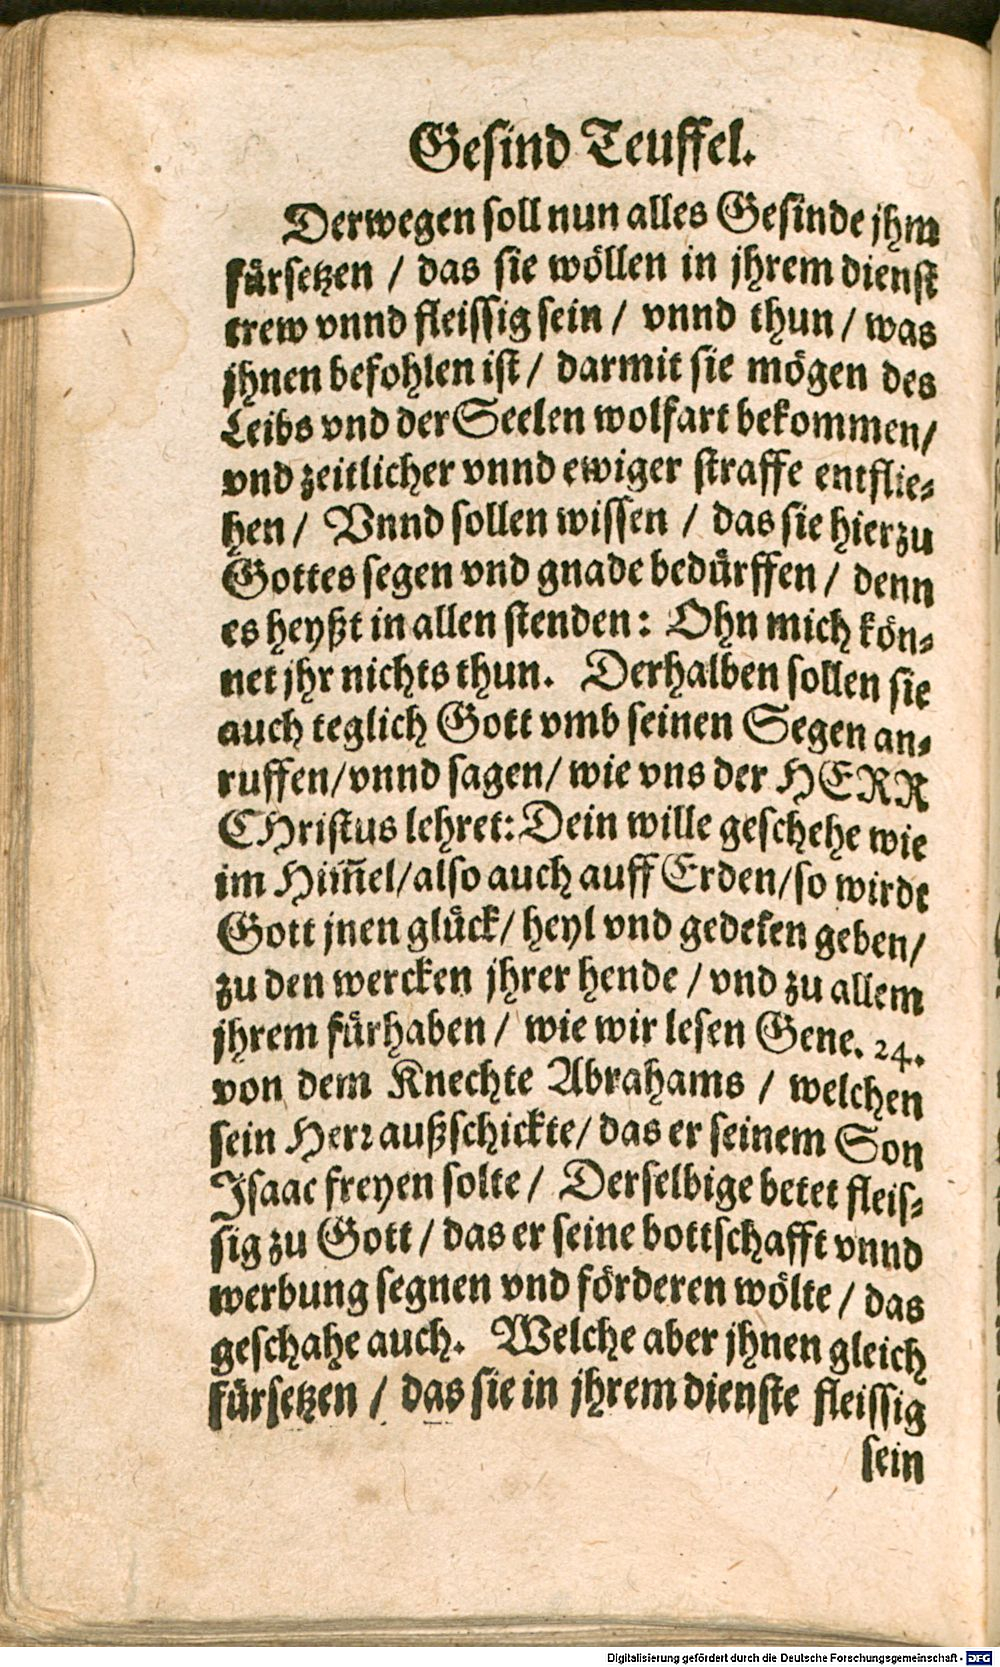 Gesind Teuffel.
Derwegen soll nun alles Gesinde jhm
fürsetzen / das sie wöllen in jhrem dienst
trew vnnd fleissig sein / vnnd thun / was
jhnen befohlen ist / darmit sie mögen des
Leibs vnd der Seelen wolfart bekommen /
vnd zeitlicher vnnd ewiger straffe entflie-
hen / Vnnd sollen wissen / das sie hierzu
Gottes segen vnd gnade bedürffen / denn
es heyßt in allen stenden: Ohn mich kön-
net jhr nichts thun. Derhalben sollen sie
auch teglich Gott vmb seinen Segen an-
ruffen / vnnd sagen / wie vns der HERR
CHristus lehret: Dein wille geschehe wie
im Him̄el / also auch auff Erden / so wirdt
Gott jnen glück / heyl vnd gedeien geben /
zu den wercken jhrer hende / vnd zu allem
jhrem fürhaben / wie wir lesen Gene. 24.
von dem Knechte Abrahams / welchen
sein Herr außschickte / das er seinem Son
Isaac freyen solte / Derselbige betet fleis-
sig zu Gott / das er seine bottschafft vnnd
werbung segnen vnd förderen wölte / das
geschahe auch. Welche aber jhnen gleich
fürsetzen / das sie in jhrem dienste fleissig
sein
Digitalisierung gefördert durch die Deutsche Forschungsgemeinschaft - DFG